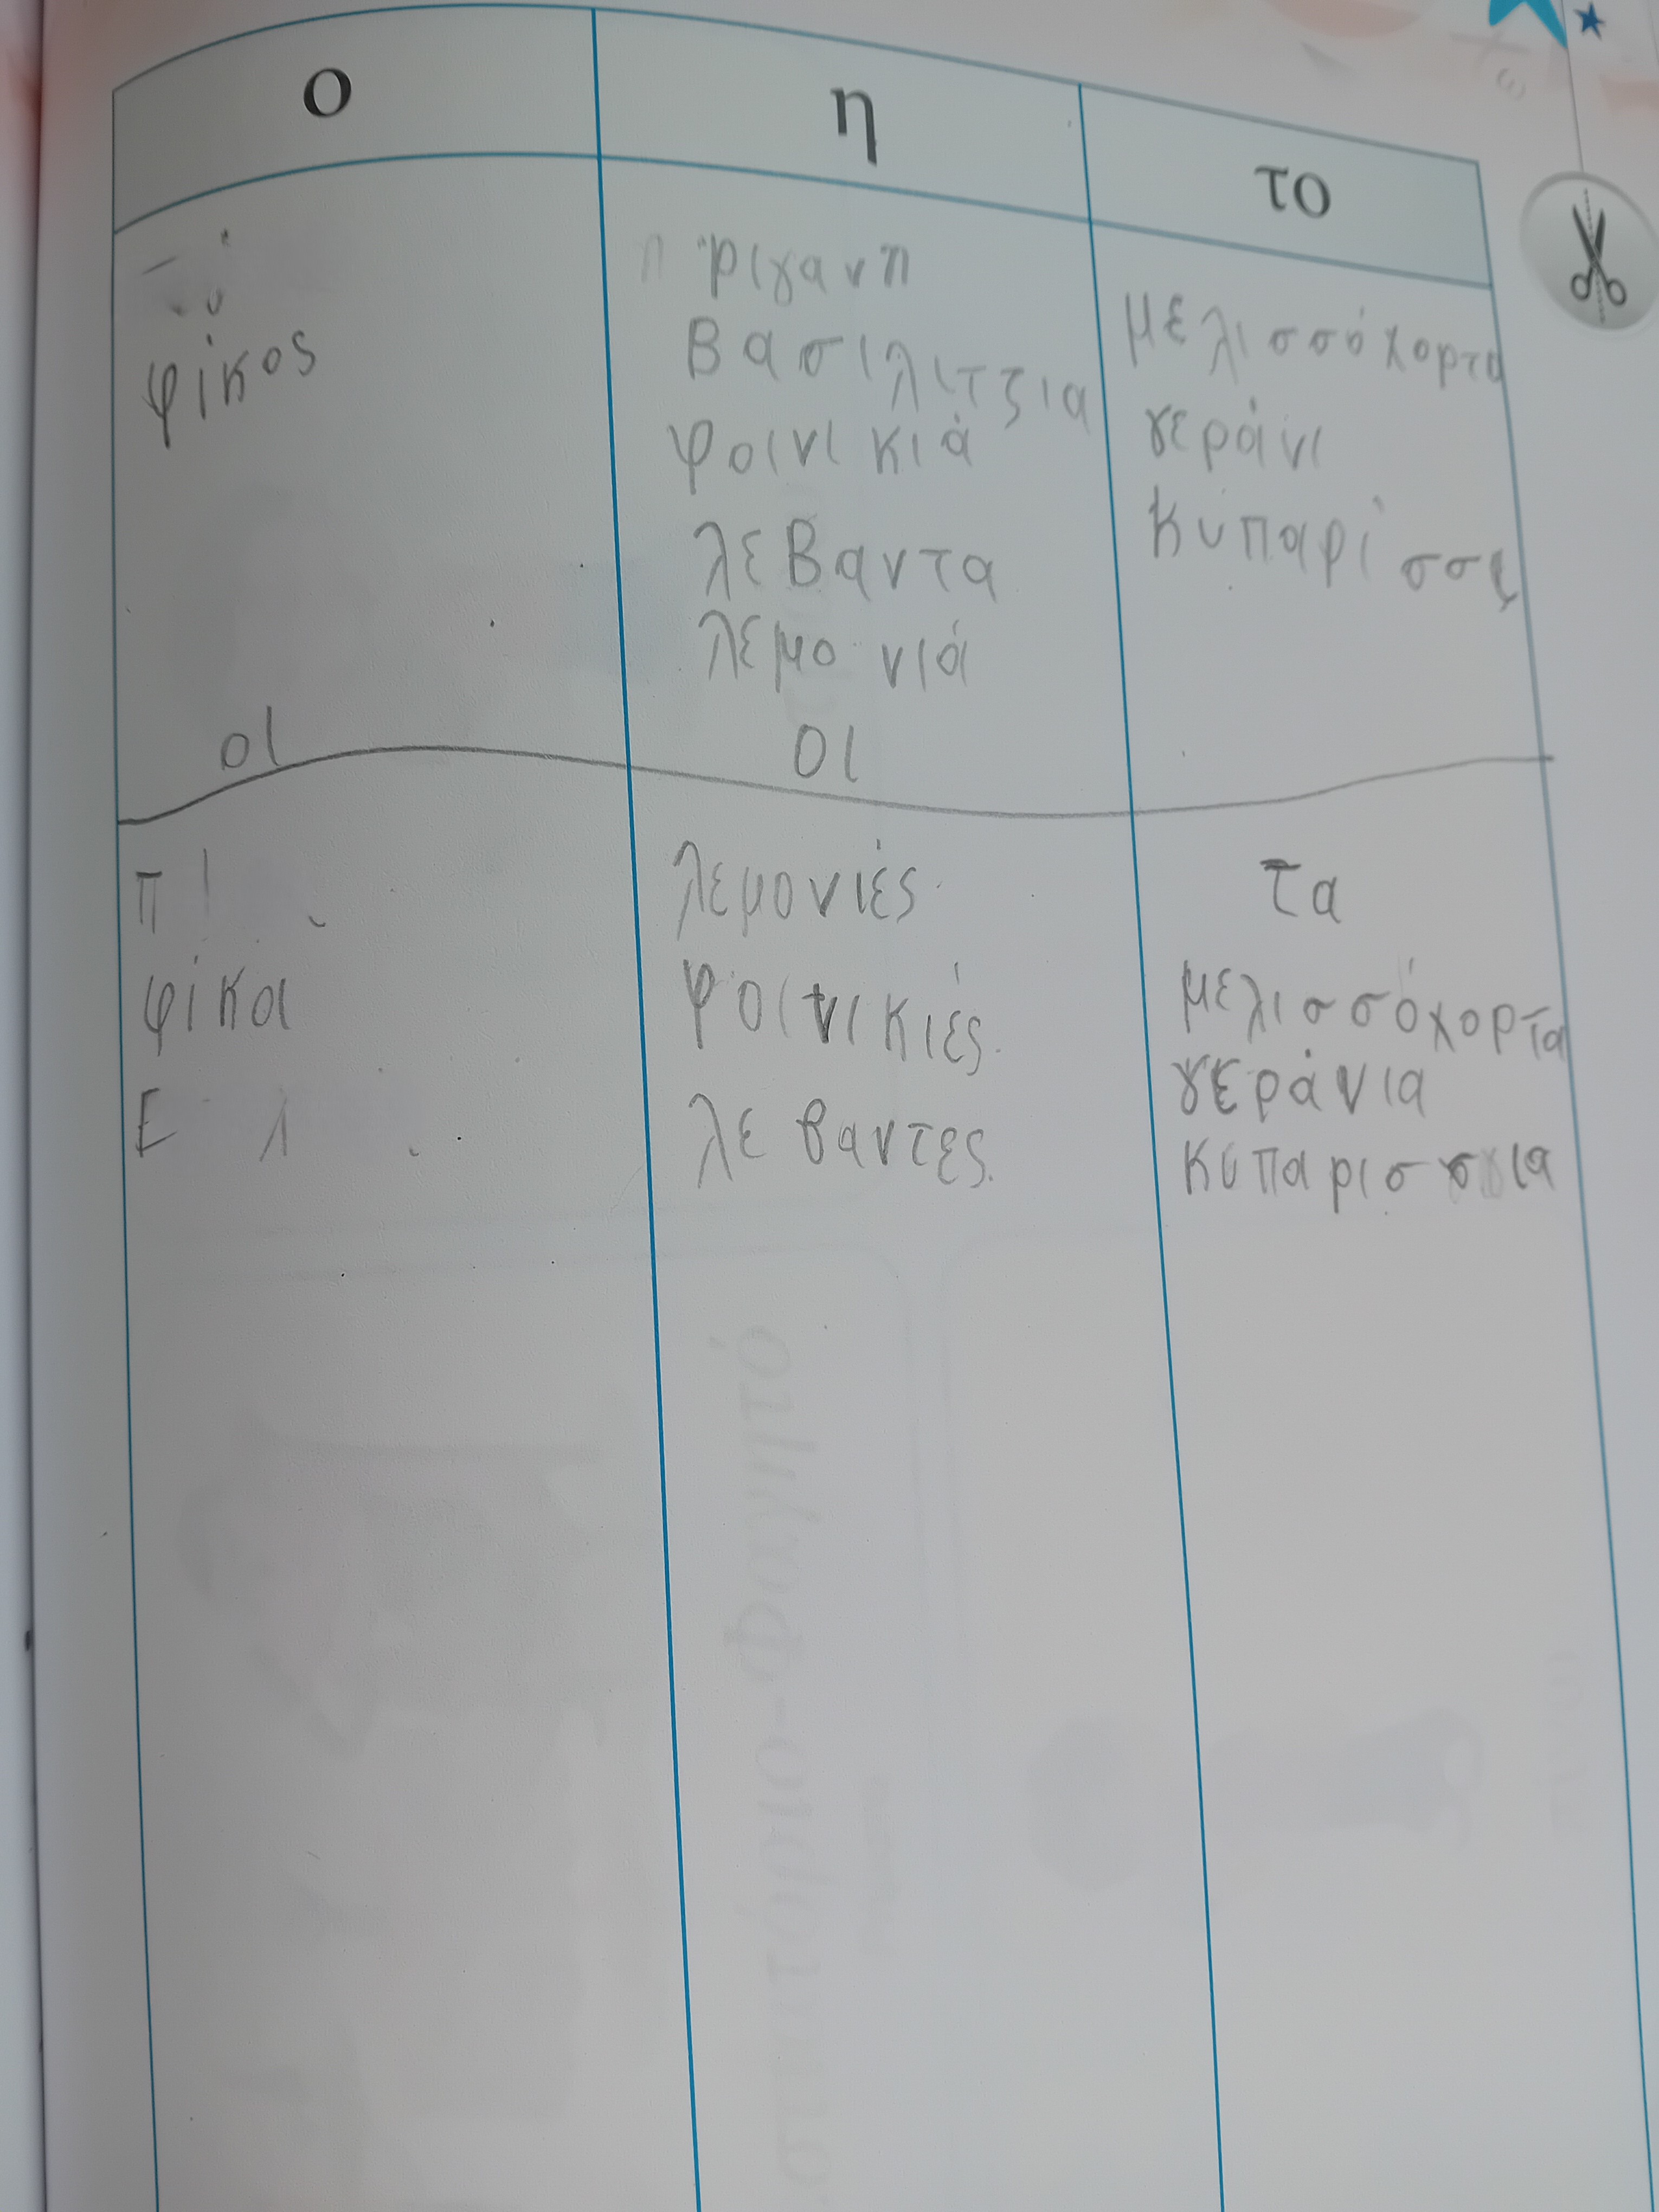 ο η το
φίκος
ριγανη
Βασιλιτζια
φοινικιά
λεΒαντα
λεμονιά
μελισσόχορτα
γεράνι
οι
οι
φίκα
λεμονιές
φοινικιές
λεβαντες
τα
μελισσόχορτα
γεράνια
κυπαρισσια